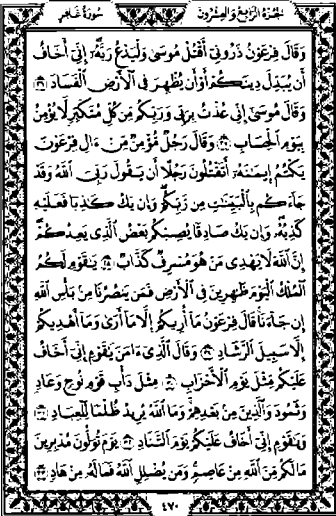 سُورَةُ غَافِرٍ الجُزْءُ الرَّابِعُ وَالعِشْرُونَ
وَقَالَ فِرْعَوْنُ ذَرُونِي أَقْتُلْ مُوسَىٰ وَلْيَدْعُ رَبَّهُ إِنِّي أَخَافُ
أَن يُبَدِّلَ دِينَكُمْ أَوْ أَن يُظْهِرَ فِي الْأَرْضِ الْفَسَادَ ٢٦
وَقَالَ مُوسَىٰ إِنِّي عُذْتُ بِرَبِّي وَرَبِّكُم مِّن كُلِّ مُتَكَبِّرٍ لَّا يُؤْمِنُ
بِيَوْمِ الْحِسَابِ ٢٧ وَقَالَ رَجُلٌ مُّؤْمِنٌ مِّنْ ءَالِ فِرْعَوْنَ
يَكْتُمُ إِيمَٰنَهُ أَتَقْتُلُونَ رَجُلًا أَن يَقُولَ رَبِّيَ اللَّهُ وَقَدْ
جَاءَكُم بِالْبَيِّنَٰتِ مِن رَّبِّكُمْ وَإِن يَكُ كَٰذِبًا فَعَلَيْهِ
كَذِبُهُ وَإِن يَكُ صَادِقًا يُصِبْكُم بَعْضُ الَّذِي يَعِدُكُمْ
إِنَّ اللَّهَ لَا يَهْدِي مَنْ هُوَ مُسْرِفٌ كَذَّابٌ ٢٨ يَٰقَوْمِ لَكُمُ
الْمُلْكُ الْيَوْمَ ظَٰهِرِينَ فِي الْأَرْضِ فَمَن يَنصُرُنَا مِن بَأْسِ اللَّهِ
إِن جَاءَنَا قَالَ فِرْعَوْنُ مَا أُرِيكُمْ إِلَّا مَا أَرَىٰ وَمَا أَهْدِيكُمْ
إِلَّا سَبِيلَ الرَّشَادِ ٢٩ وَقَالَ الَّذِي ءَامَنَ يَٰقَوْمِ إِنِّي أَخَافُ
عَلَيْكُم مِّثْلَ يَوْمِ الْأَحْزَابِ ٣٠ مِثْلَ دَأْبِ قَوْمِ نُوحٍ وَعَادٍ
وَثَمُودَ وَالَّذِينَ مِن بَعْدِهِمْ وَمَا اللَّهُ يُرِيدُ ظُلْمًا لِّلْعِبَادِ ٣١
وَيَٰقَوْمِ إِنِّي أَخَافُ عَلَيْكُمْ يَوْمَ التَّنَادِ ٣٢ يَوْمَ تُوَلُّونَ مُدْبِرِينَ
مَا لَكُم مِّنَ اللَّهِ مِنْ عَاصِمٍ وَمَن يُضْلِلِ اللَّهُ فَمَا لَهُ مِنْ هَادٍ ٣٣
٤٧٠